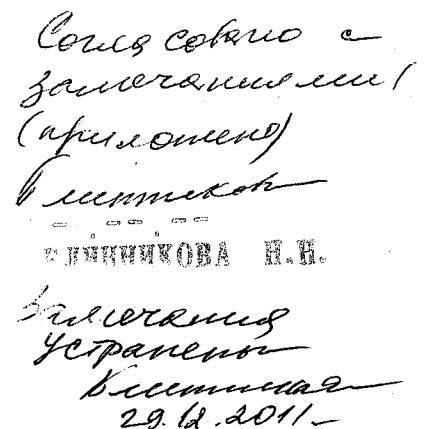 Согласовано с
замечаниями
(приложено)
Н.Н.
Замечания
устранены
29.12.2011